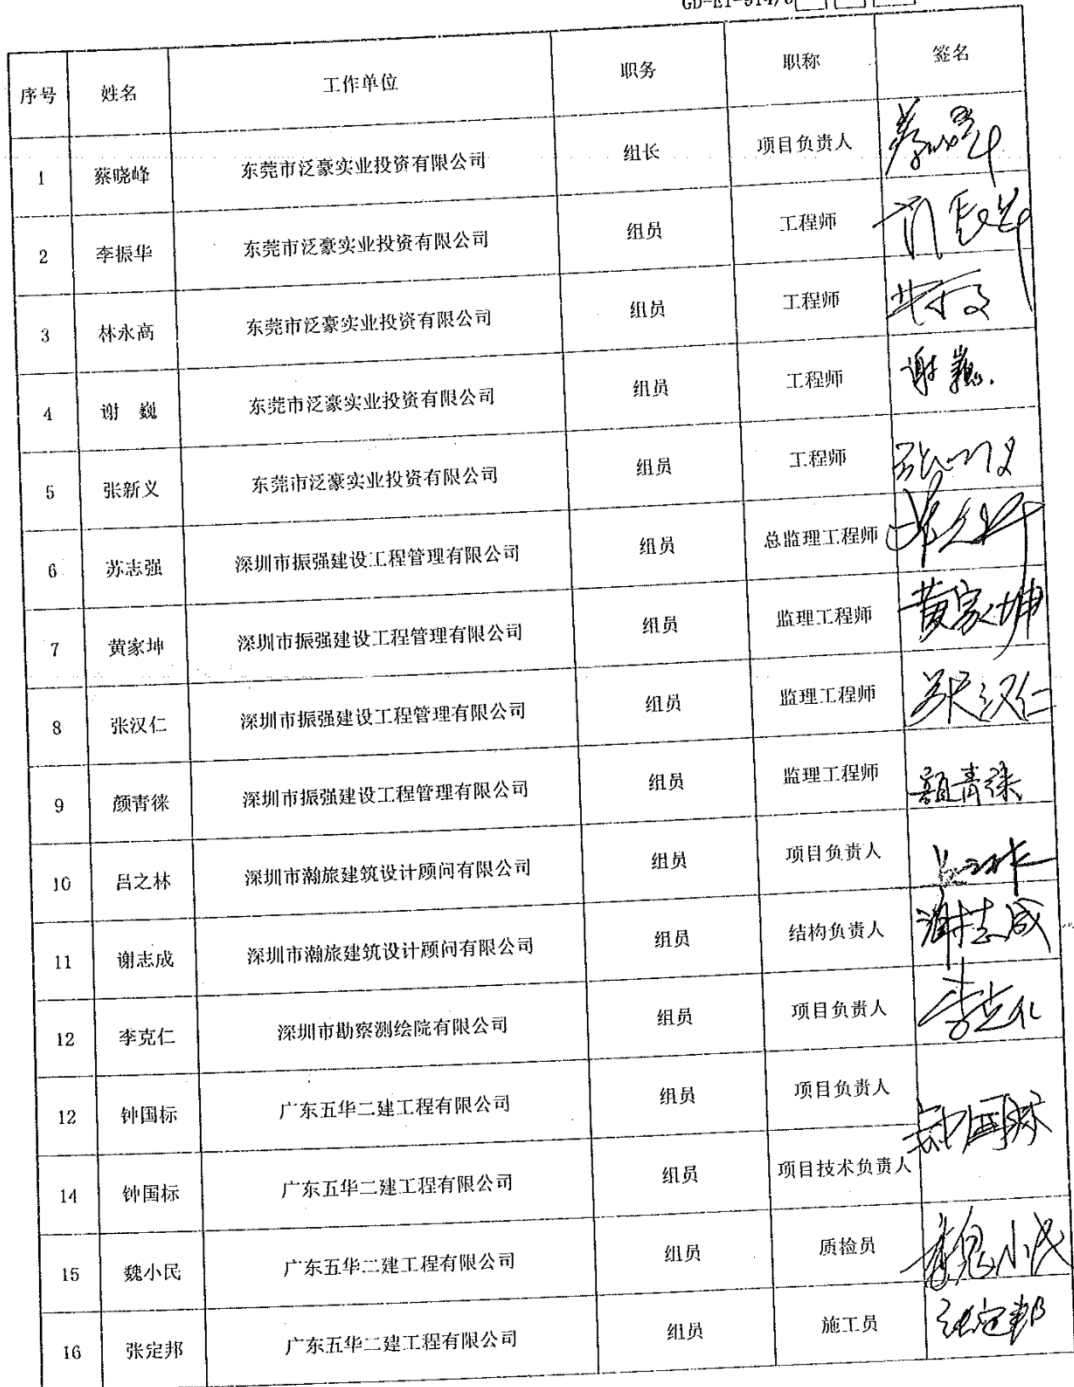 GD-E1-914/6
序号 姓名 工作单位 职务 职称 签名
1 蔡晓峰 东莞市泛豪实业投资有限公司 组长 项目负责人
2 李振华 东莞市泛豪实业投资有限公司 组员 工程师
3 林永高 东莞市泛豪实业投资有限公司 组员 工程师
4 谢 巍 东莞市泛豪实业投资有限公司 组员 工程师 谢巍
5 张新义 东莞市泛豪实业投资有限公司 组员 工程师
6 苏志强 深圳市振强建设工程管理有限公司 组员 总监理工程师
7 黄家坤 深圳市振强建设工程管理有限公司 组员 监理工程师 黄家坤
8 张汉仁 深圳市振强建设工程管理有限公司 组员 监理工程师 张汉仁
9 颜青徕 深圳市振强建设工程管理有限公司 组员 监理工程师 颜青徕
10 吕之林 深圳市瀚旅建筑设计顾问有限公司 组员 项目负责人 吕之林
11 谢志成 深圳市瀚旅建筑设计顾问有限公司 组员 结构负责人 谢志成
12 李克仁 深圳市勘察测绘院有限公司 组员 项目负责人 李克仁
12 钟国标 广东五华二建工程有限公司 组员 项目负责人 钟国标
14 钟国标 广东五华二建工程有限公司 组员 项目技术负责人
15 魏小民 广东五华二建工程有限公司 组员 质检员 魏小民
16 张定邦 广东五华二建工程有限公司 组员 施工员 张定邦